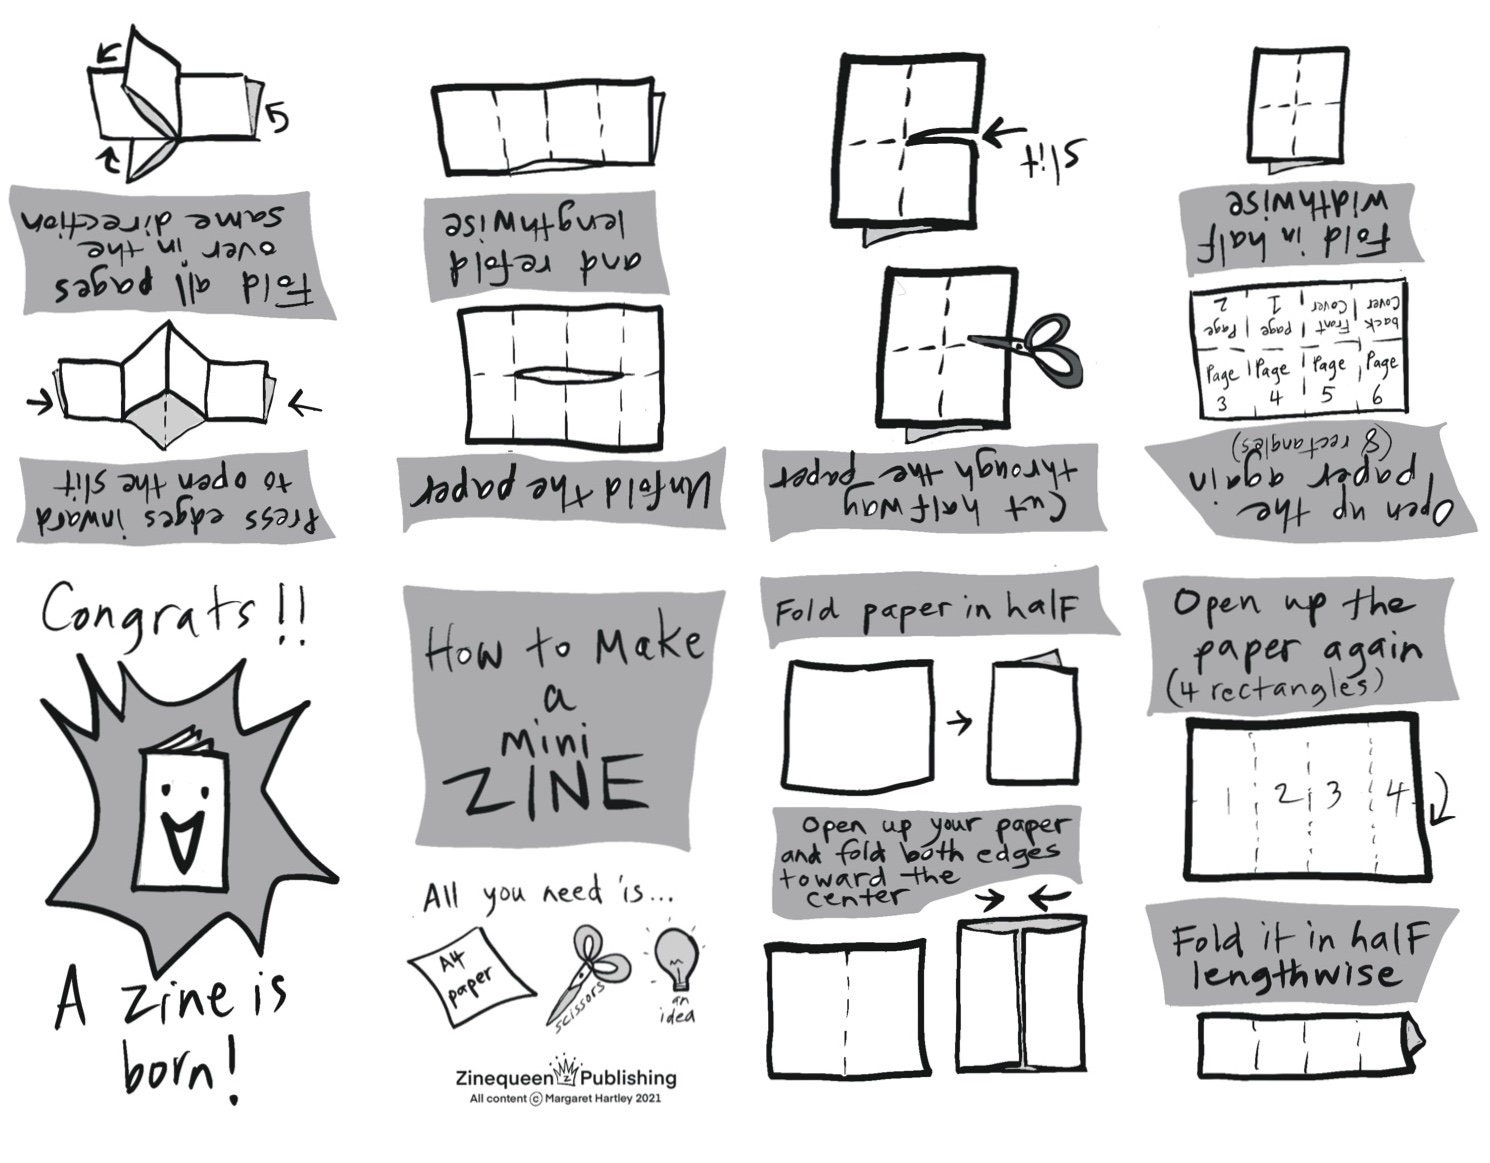 How to Make
a
mini
ZINE
All you need is...
A4
paper
scissors
an
idea
Zinequeen Publishing
All content © Margaret Hartley 2021
Fold paper in half
Open up your paper
and fold both edges
toward the
center
Open up the
paper again
(4 rectangles)
1 2 3 4
Fold it in half
lengthwise
Open up the
paper again
(8 rectangles)
Page
3
Page
4
Page
5
Page
6
back
Cover
Front
Cover
page
1
Page
2
Fold in half
widthwise
Cut halfway
through the paper
slit
Unfold the paper
and refold
lengthwise
Press edges inward
to open the slit
Fold all pages
over in the
same direction
Congrats!!
A zine is
born!